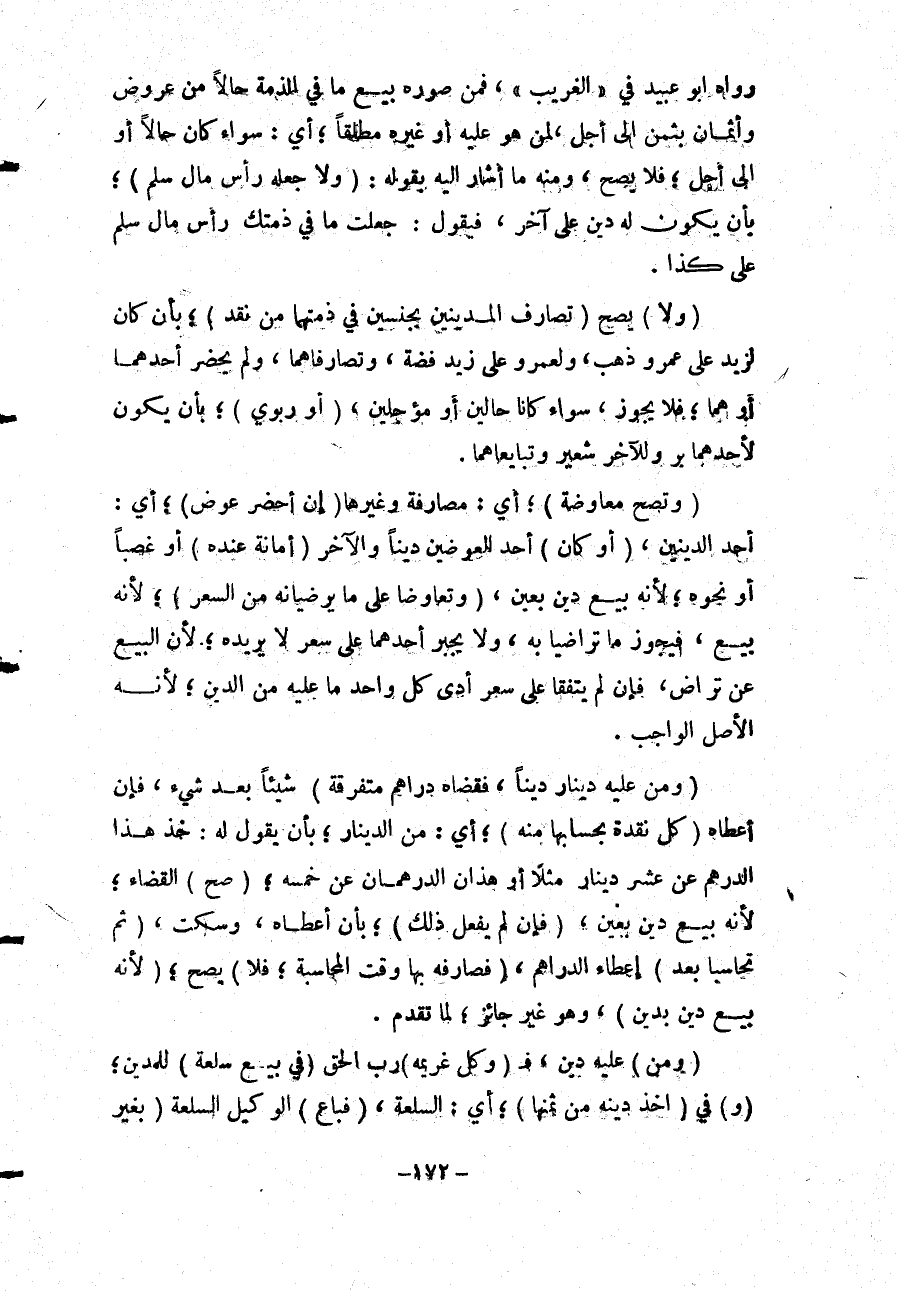 ورواه ابو عبيد في « الغريب » ، فمن صوره بيع ما في الذمة حالاً من عروض
وأثمان بثمن إلى أجل ، لمن هو عليه أو غيره مطلقاً ؛ أي : سواء كان حالاً أو
الى أجل ؛ فلا يصح ، ومنه ما أشار اليه بقوله : ( ولا جعله رأس مال سلم ) ؛
بأن يكون له دين على آخر ، فيقول : جعلت ما في ذمتك رأس مال سلم
على كذا .
( ولا ) يصح ( تصارف المدينين بجنسين في ذمتها من نقد ) ؛ بأن كان
لزيد على عمرو ذهب، ولعمرو على زيد فضة ، وتصارفاهما ، ولم يحضر أحدهما
أو هما ؛ فلا يجوز ، سواء كانا حالين أو مؤجلين ، ( أو ربوي ) ؛ بأن يكون
لأحدهما بر وللآخر شعير وتبايعاهما .
( وتصح معاوضة ) ؛ أي : مصارفة وغيرها ( إن أحضر عوض) ؛ أي :
أحد الدينين ، ( أو كان ) أحد العوضين ديناً والآخر ( أمانة عنده ) أو غصباً
أو نحوه ؛ لأنه بيع دين بعين ، ( وتعاوضا على ما يرضيانه من السعر ) ؛ لأنه
بيع ، فيجوز ما تراضيا به ، ولا يجبر أحدهما على سعر لا يريده ؛ لأن البيع
عن تراض، فإن لم يتفقا على سعر أدى كل واحد ما عليه من الدين ؛ لأنه
الأصل الواجب .
( ومن عليه دينار ديناً ، فقضاه دراهم متفرقة ) شيئاً بعد شيء ، فإن
أعطاه ( كل نقدة بحسابها منه ) ؛ أي : من الدينار ؛ بأن يقول له : خذ هذا
الدرهم عن عشر دينار مثلًا أو هذان الدرهمان عن خمسه ؛ ( صح ) القضاء ؛
لأنه بيع دين بعين ، ( فإن لم يفعل ذلك ) ؛ بأن أعطاه ، وسكت ، ( ثم
تحاسبا بعد ) إعطاء الدراهم ، ( فصارفه بها وقت المحاسبة ؛ فلا ) يصح ؛ ( لأنه
بيع دين بدين ) ، وهو غير جائز ؛ لما تقدم .
( ومن ) عليه دين ، فـ ( وكل غريمه )رب الحق (في بيع سلعة ) للمدين؛
(و) في ( اخذ دينه من ثمنها ) ؛ أي : السلعة ، ( فباع ) الوكيل السلعة ( بغير
-١٧٢-